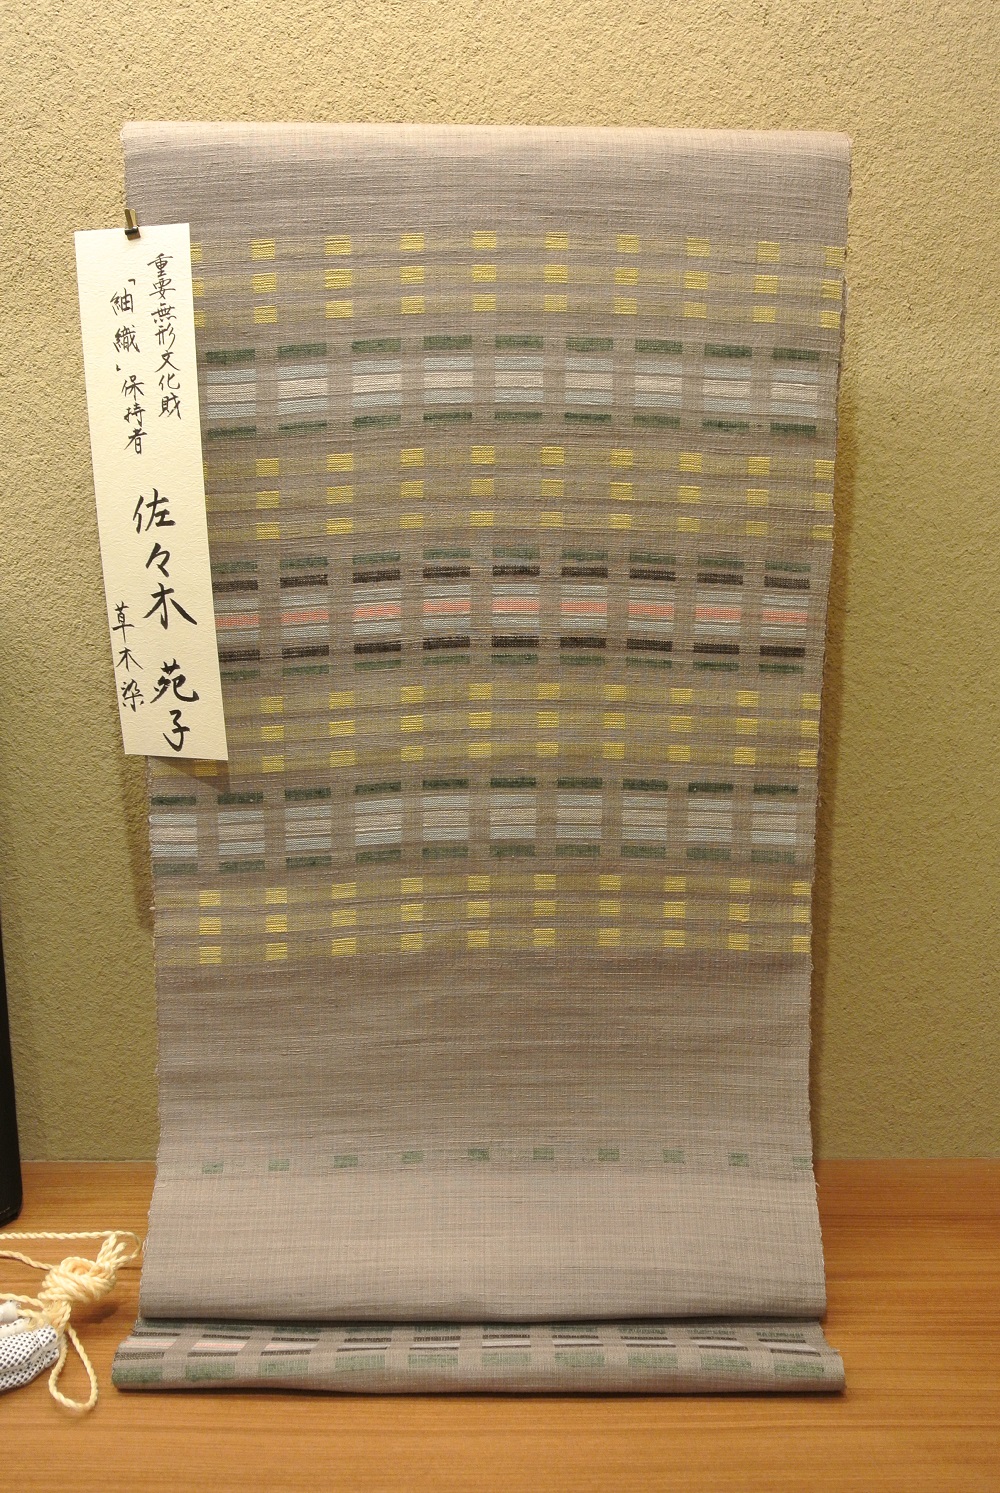 重要無形文化財
「紬織」保持者
佐々木苑子
草木染